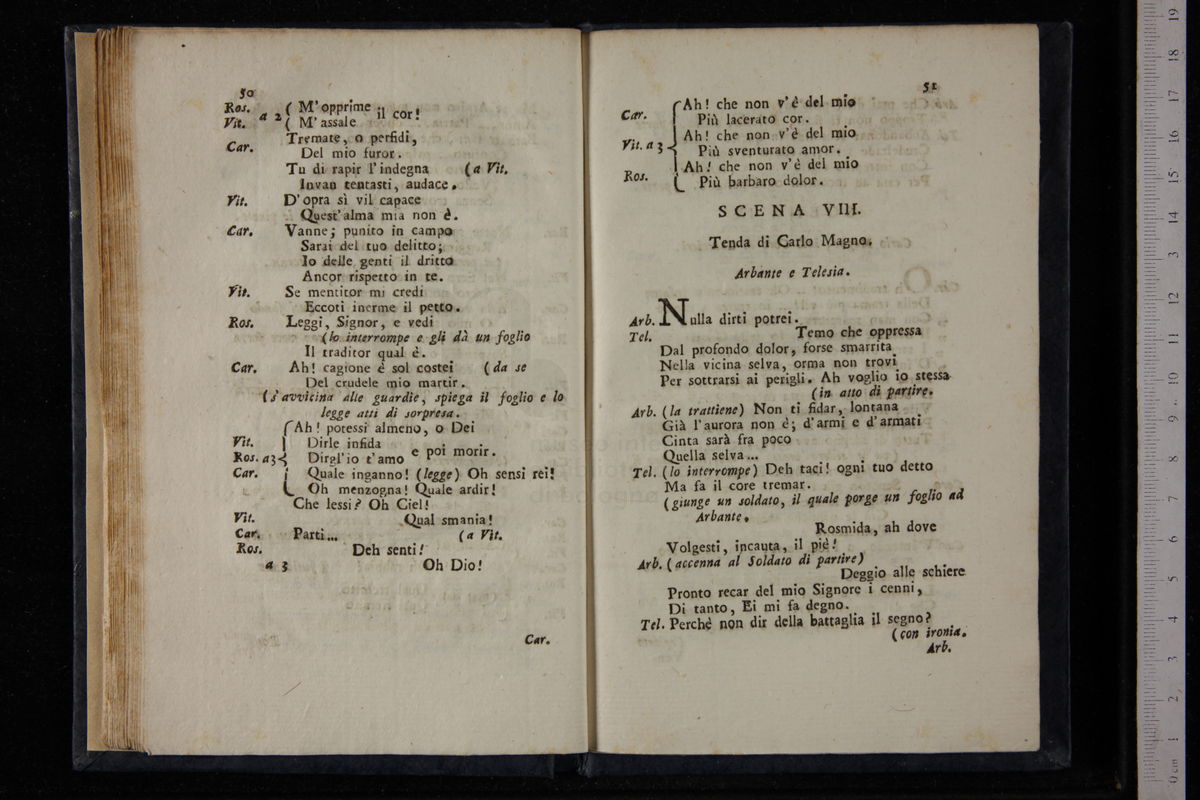 50
Ros. a 2 ( M' opprime il cor!
Vit. ( M' assale
Car. Tremate, o perfidi,
Del mio furor.
Tu di rapir l'indegna (a Vit.
Invan tentasti, audace.
Vit. D'opra sì vil capace
Quest'alma mia non è.
Car. Vanne; punito in campo
Sarai del tuo delitto;
Io delle genti il dritto
Ancor rispetto in te.
Vit. Se mentitor mi credi
Eccoti inerme il petto.
Ros. Leggi, Signor, e vedi
(lo interrompe e gli dà un foglio
Il traditor qual è.
Car. Ah! cagione è sol costei (da se
Del crudele mio martir.
(s'avvicina alle guardie, spiega il foglio e lo
legge atti di sorpresa.
Ah! potessi almeno, o Dei
Vit. Dirle infida
Ros. a 3 Dirgl'io t'amo e poi morir.
Car. Quale inganno! (legge) Oh sensi rei!
Oh menzogna! Quale ardir!
Che lessi? Oh Ciel!
Vit. Qual smania!
Car. Parti... (a Vit.
Ros. Deh senti!
a 3 Oh Dio!
Car.
51
Car. Ah! che non v'è del mio
Più lacerato cor.
Vit. a 3 Ah! che non v'è del mio
Più sventurato amor.
Ros. Ah! che non v'è del mio
Più barbaro dolor.
SCENA VIII.
Tenda di Carlo Magno.
Arbante e Telesia.
Arb. Nulla dirti potrei.
Tel. Temo che oppressa
Dal profondo dolor, forse smarrita
Nella vicina selva, orma non trovi
Per sottrarsi ai perigli. Ah voglio io stessa
(in atto di partire.
Arb. (la trattiene) Non ti fidar, lontana
Già l'aurora non è; d'armi e d'armati
Cinta sarà fra poco
Quella selva...
Tel. (lo interrompe) Deh taci! ogni tuo detto
Ma fa il core tremar.
(giunge un soldato, il quale porge un foglio ad
Arbante.
Rosmida, ah dove
Volgesti, incauta, il piè!
Arb. (accenna al Soldato di partire)
Deggio alle schiere
Pronto recar del mio Signore i cenni,
Di tanto, Ei mi fa degno.
Tel. Perchè non dir della battaglia il segno?
(con ironia.
Arb.